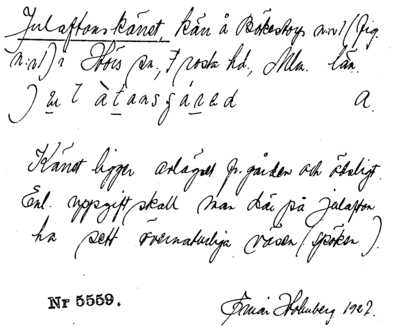 Julaftonskäret, kärr å Bökestorps n:r 1 (fig.
n:r 1) i Hörs sn, Frosta hd, Mlm. län.
a.
Käret ligger avlägset fr. gården och ödsligt.
Enl. uppgift skall man där på julafton
ha sett övernaturliga väsen (spöken).
Nr 5559.
Einar Holmberg 1927.